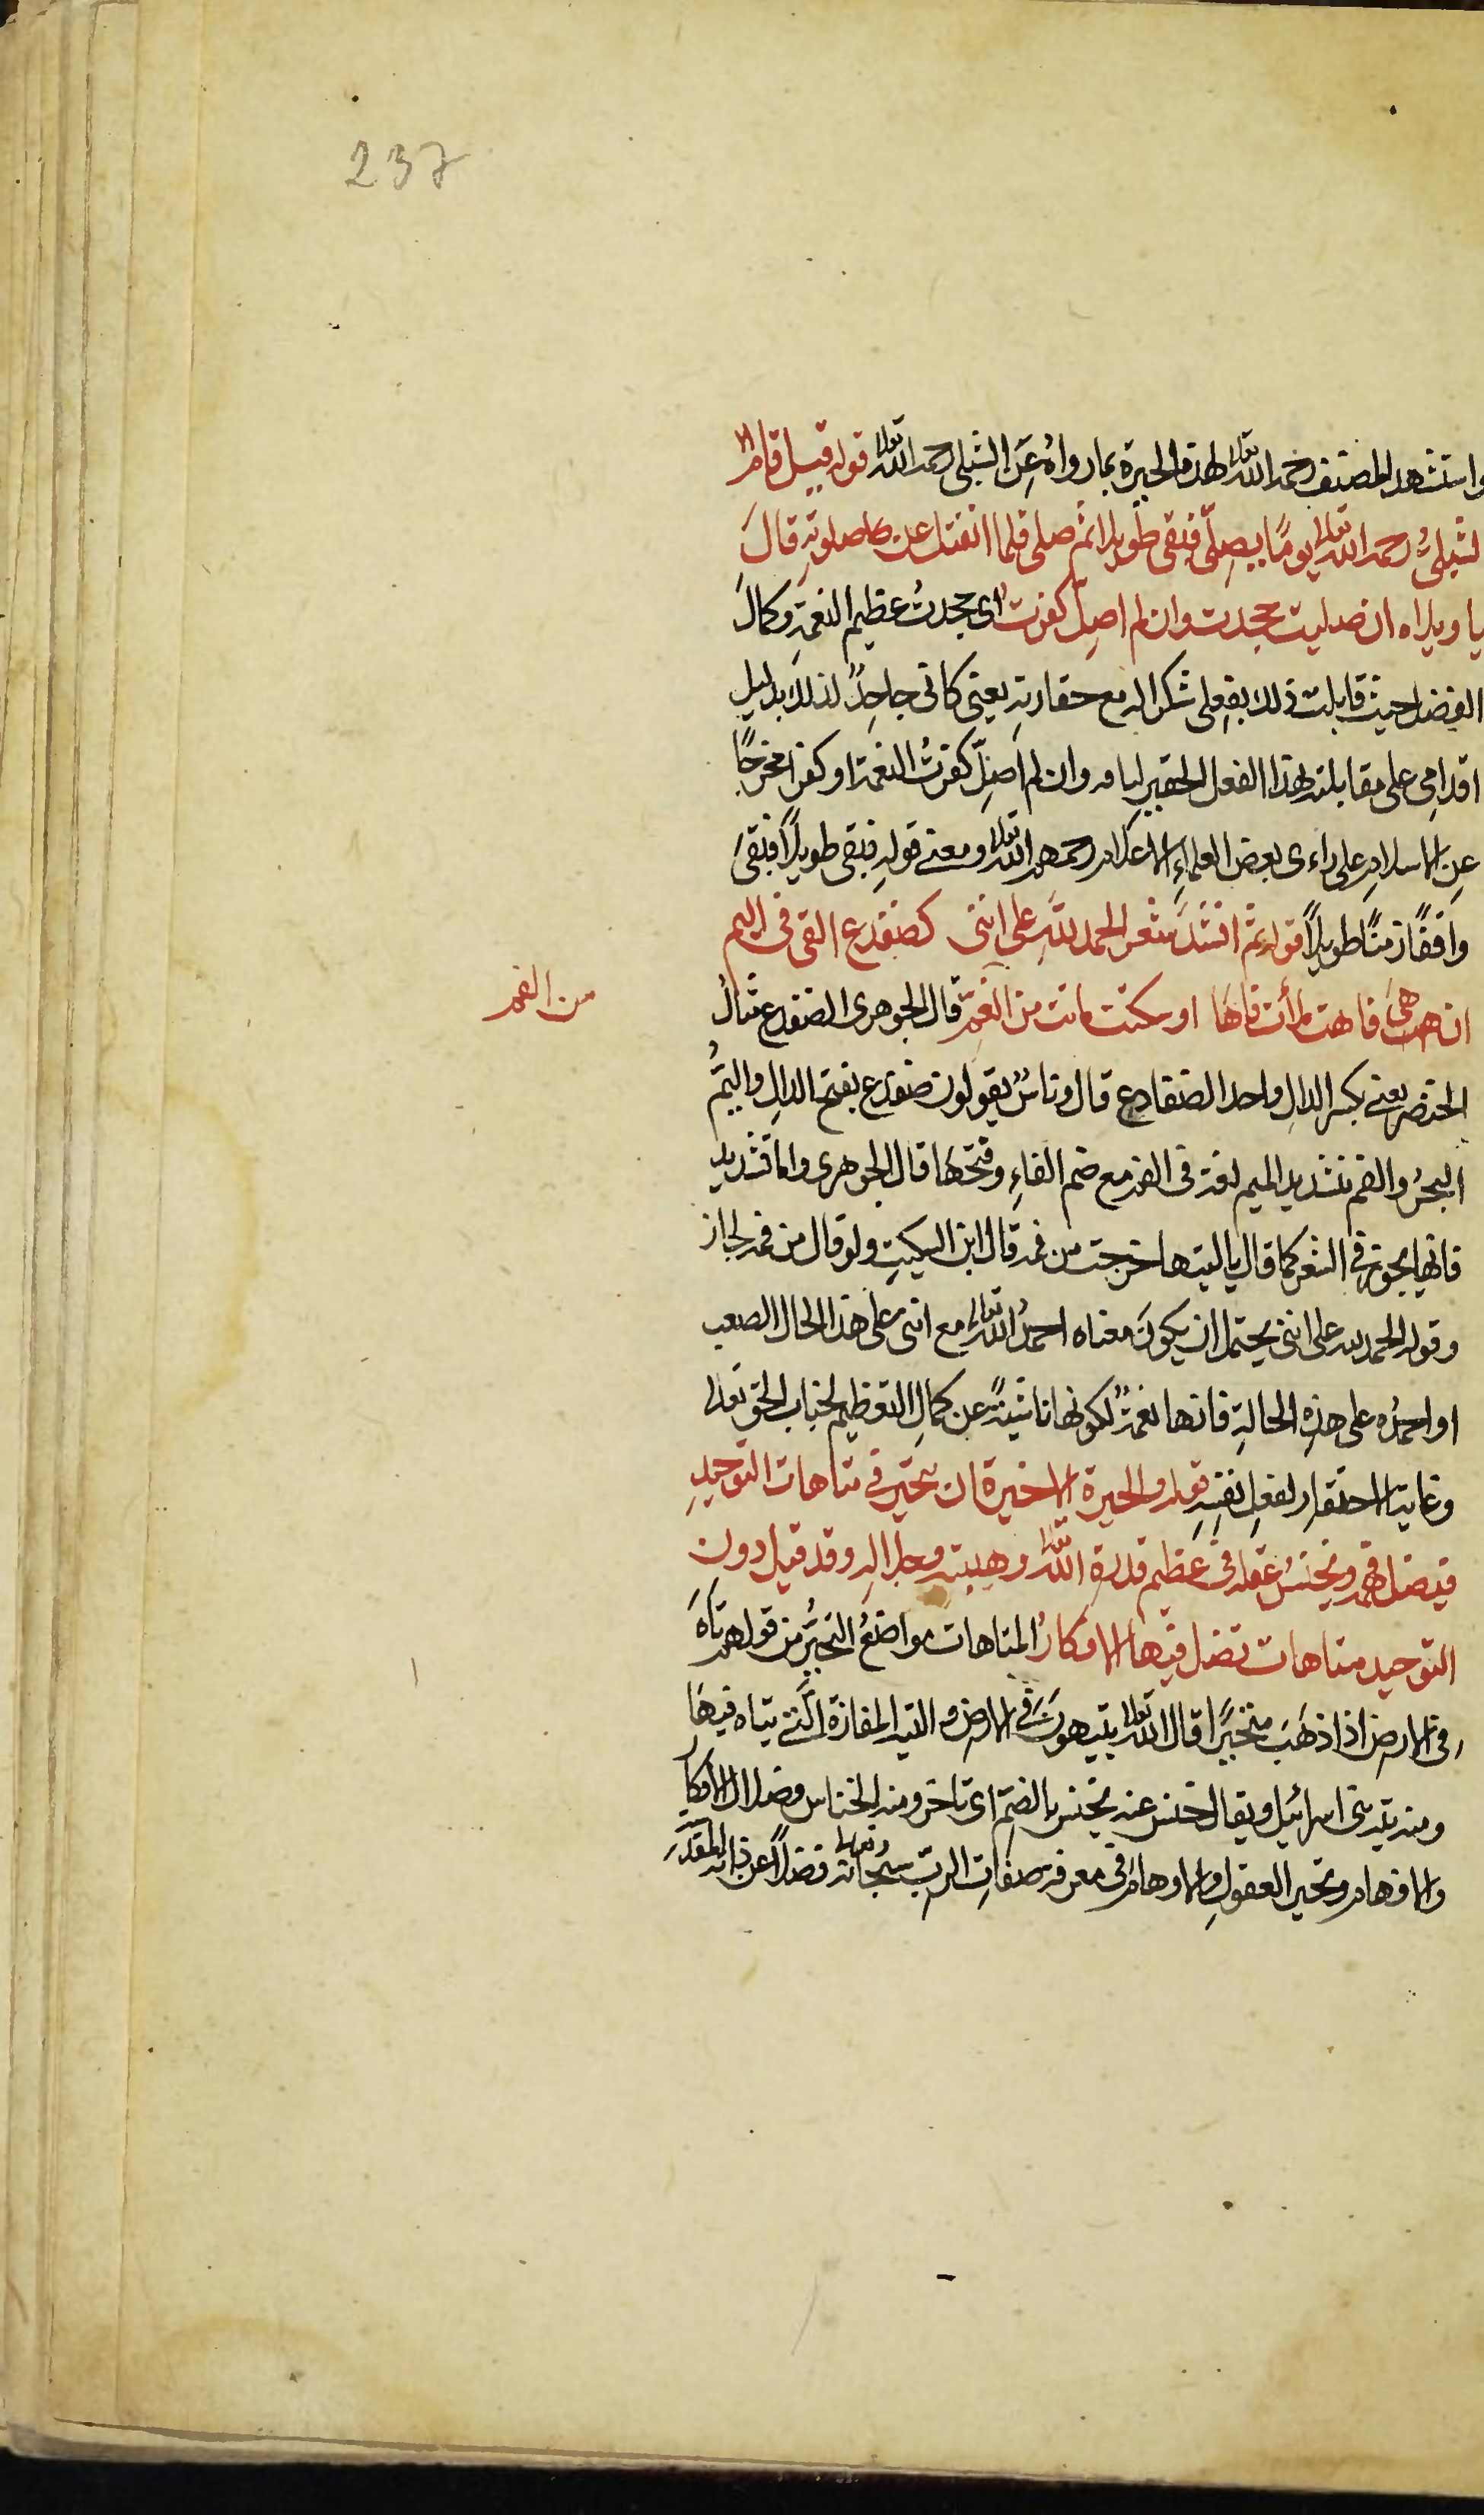 237
واستشهد المصنف رحمه الله تعالى لهذه الحيرة بما رواه عن الشبلى رحمه الله تعالى قوله قيل قام ال
شبلىُّ رحمه الله تعالى يومًا يصلّى فبقى طويلا ثم صلى فلما انفتل عن صلوته قالَ
يا ويلاه ان صليت جحدت وان لم اصلِّ كفرت اى جحدتُ عظيم النعمةِ وكمالَ
الفضل حيث قابلت ذلك بفعلى شكرا له مع حقارته يعنى كانى جاحدٌ لذلك بدليل
اقدامى على مقابلته بهذا الفعل الحقير وان لم اصلِّ كفرتُ النعمة او كفرا مخرجًا
عن الاسلام على راى بعض العلماءِ الاعلام رحمهم الله تعالى ومعنى قوله فبقى طويلاً فبقىَ
واقفًا زمنًا طويلاً قوله ثم انشدَ شعر الحمد للهِ على اننى كضفدع القى فى اليم
ان هى فاهت ملأت فاها او سكتت ماتت من الغمِّ قال الجوهرى الضفدع مثالُ
من الفم
الخنصر يعنى بكسر الدالِ واحد الضفادع قال وناسٌ يقولون ضفدع بفتح الدالِ واليمُّ
البحرُ والفم بتشديد الميم لغة فى الفم مع ضم الفاءِ وفتحها قال الجوهرى واما تشديد
فانها يجوز فى الشعر كما قال يا ليتها خرجت من فمه قال ابن السكيتِ ولو قال من فمه لجاز
وقوله الحمد لله على اننى يحتمل ان يكونَ معناه احمدُ الله تعالى مع انى على هذا الحال الصعب
او احمدُه على هذه الحالةِ فانها نعمةٌ لكونها ناشيةً عن كمالِ التعظيم لجناب الحق تعالى
وغاية الاحتقارِ لفعلِ نفسِهِ قوله والحيرة الاخيرة ان يتحير فى متاهات التوحيدِ
فيضل فهمه ويخنسُ عقله فى عظيم قدرة الله تعالى وهيبته وجلاله وقد قيل دون
التوحيد متاهات تضل فيها الافكارُ المتاهات مواضعُ التحيُّر من قولهم تاهَ
فى الارض اذا ذهَبَ متحيّرًا قال الله تعالى يتيهونَ فى الارض والتيه المفازة التى يتاه فيها
ومنه تيه بنى اسرائيل ويقال خنس عنه يخنس بالضم اى تاخر ومنه الخناس وضلال الافكار
والافهام وتحير العقولِ والاوهام فى معرفة صفاتِ الربِّ سبحانه وتعالى فضلاً عن ذاته المقدسة